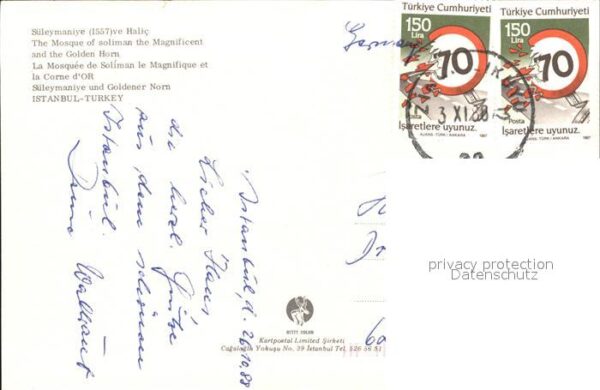 Süleymaniye (1557)ve Haliç
The Mosque of soliman the Magnificent
and the Golden Horn
La Mosquée de Soliman le Magnifique et
la Corne d'OR
Süleymaniye und Goldener Norn
ISTANBUL-TURKEY
Germany
Türkiye Cumhuriyeti
150
Lira
70
Posta
İşaretlere uyunuz.
AJANS-TÜRK / ANKARA 1987
Türkiye Cumhuriyeti
150
Lira
70
Posta
İşaretlere uyunuz.
AJANS-TÜRK / ANKARA 1987
3 XI.88
Istanbul, d. 26.10.88
Lieber Klaus
die herzl. Grüße
aus dem schönen
Istanbul.
Deine Waltraut
privacy protection
Datenschutz
Kartpostal Limited Şirketi
Cağaloğlu Yokuşu No. 39 İstanbul Tel. 526 56 51